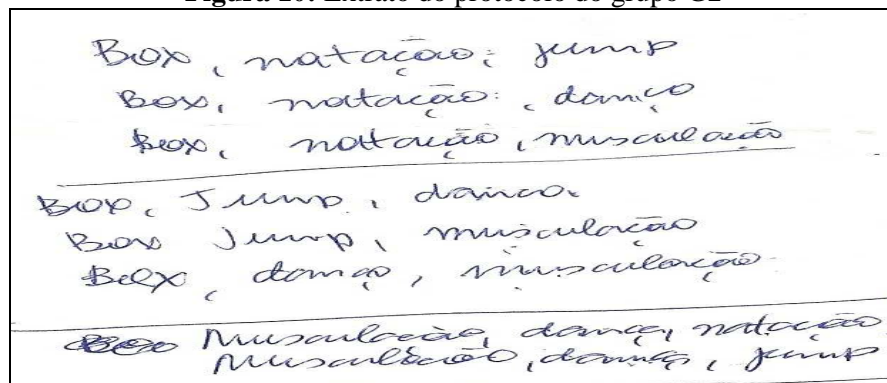 Figura 10: Extrato do protocolo do grupo G2
Box, natação; jump
Box, natação: , danço
Box, natação, musculação
Box, Jump, dança.
Box Jump, musculação
Box, dança, musculação
Musculação, dança, natação
Musculação, dança, jump